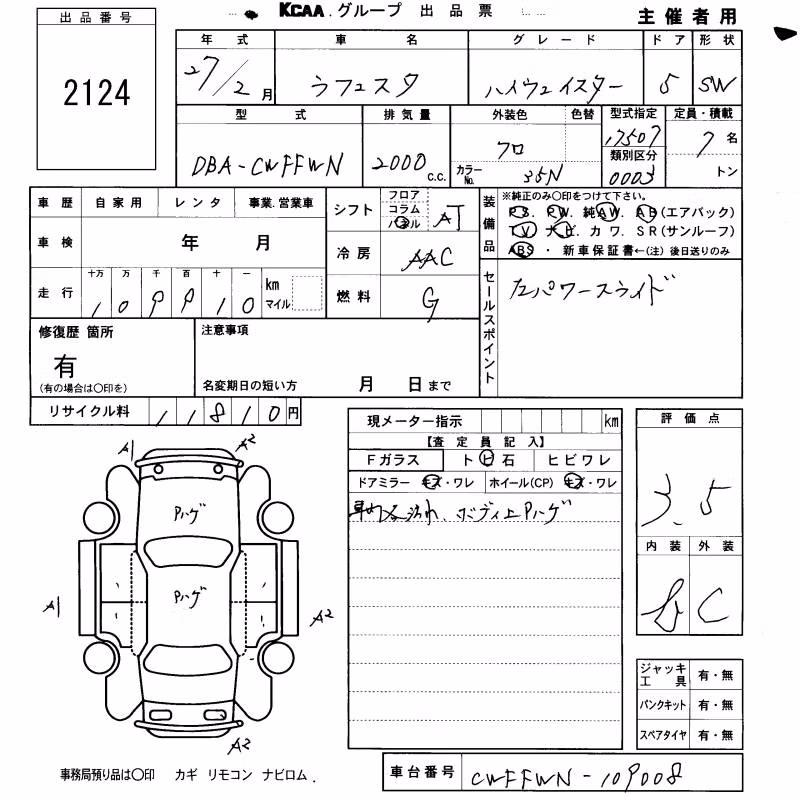 KCAA.グループ 出品票
主催者用
出品番号
2124
年式 車名 グレード ドア 形状
27/2月 ラフェスタ ハイウェイスター 5 SW
型式 排気量 外装色 色替 型式指定 定員・積載
DBA-CWFFWN 2000 c.c. クロ カラーNo. 35N 17507 7名
類別区分
0003 トン
車歴 自家用 レンタ 事業.営業車
車検 年 月
走行 十万 万 千 百 十 一 km マイル
109910
シフト フロア コラム パネル AT
冷房 AAC
燃料 G
装備品
※純正のみ○印をつけて下さい。
P.S. P.W. 純AW. A.B(エアバック)
T.V ナビ. カワ. SR(サンルーフ)
ABS ・ 新車保証書←(注) 後日送りのみ
セールスポイント
左パワースライド
修復歴 箇所
有
(有の場合は○印を)
注意事項
名変期日の短い方 月 日まで
リサイクル料 11810円
現メーター指示 km
【査定員記入】
Fガラス ト ビ 石 ヒビワレ
ドアミラー キズ・ワレ ホイール(CP) キズ・ワレ
汚れ、ボディ上Pハゲ
評価点
3.5
内装 外装
b C
A1 A2
Pハゲ
Pハゲ
A1 A2
A2
ジャッキ工具 有・無
パンクキット 有・無
スペアタイヤ 有・無
事務局預り品は○印 カギ リモコン ナビロム.
車台番号 CWFFWN-109008